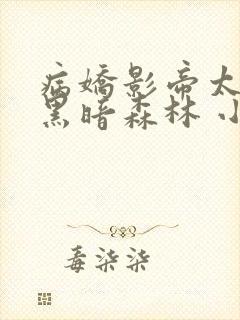 病嬌影帝太
黑暗森林 小
毒柒柒